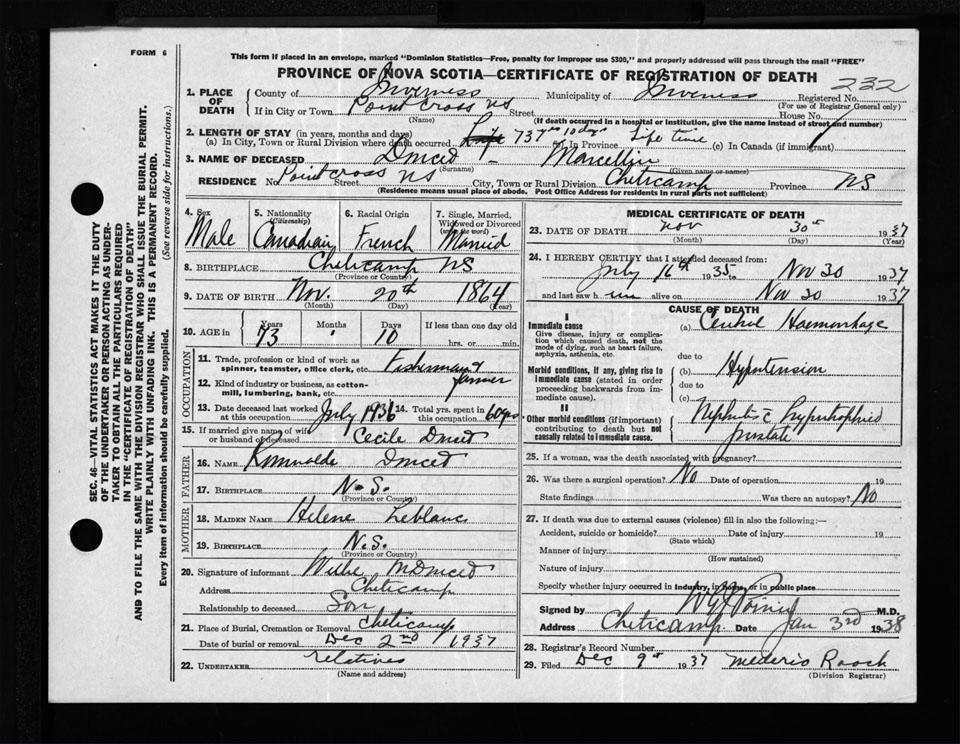 FORM 6
This form if placed in an envelope, marked "Dominion Statistics—Free, penalty for improper use $300," and properly addressed will pass through the mail "FREE"
PROVINCE OF NOVA SCOTIA—CERTIFICATE OF REGISTRATION OF DEATH
232
1. PLACE OF DEATH County of Inverness Municipality of Inverness Registered No.
(For use of Registrar General only)
If in City or Town Point Cross NS Street House No.
(Name) (If death occurred in a hospital or institution, give the name instead of street and number)
2. LENGTH OF STAY (in years, months and days)
(a) In City, Town or Rural Division where death occurred 73 yrs 10 dys (b) In Province Life time (c) In Canada (if immigrant)
3. NAME OF DECEASED Doucet - Marcellin
(Surname) (Given name or names)
RESIDENCE No. Point Cross NS Street City, Town or Rural Division Cheticamp Province NS
(Residence means usual place of abode. Post Office Address for Residents in rural parts not sufficient)
4. Sex Male
5. Nationality (Citizenship) Canadian
6. Racial Origin French
7. Single, Married, Widowed or Divorced (write the word) Married
8. BIRTHPLACE Cheticamp NS
(Province or Country)
9. DATE OF BIRTH Nov. 20th 1864
(Month) (Day) (Year)
10. AGE in Years Months Days If less than one day old
73 " 10 hrs. or min.
OCCUPATION
11. Trade, profession or kind of work as spinner, teamster, office clerk, etc. Fisherman &
farmer
12. Kind of industry or business, as cotton-mill, lumbering, bank, etc.
13. Date deceased last worked at this occupation July 1936 14. Total yrs. spent in this occupation 60 yrs
15. If married give name of wife or husband of deceased Cecile Doucet
FATHER
16. NAME Doucet
17. BIRTHPLACE N.S.
(Province or Country)
MOTHER
18. MAIDEN NAME Helene Leblanc
19. BIRTHPLACE N.S.
(Province or Country)
20. Signature of informant Willie M Doucet
Address Cheticamp
Relationship to deceased Son
21. Place of Burial, Cremation or Removal Cheticamp
Date of burial or removal Dec 2nd 1937
22. UNDERTAKER relatives
(Name and address)
MEDICAL CERTIFICATE OF DEATH
23. DATE OF DEATH Nov 30th 1937
(Month) (Day) (Year)
24. I HEREBY CERTIFY that I attended deceased from:
July 16th 1935 to Nov 30 1937
and last saw him alive on Nov 30 1937
CAUSE OF DEATH
I
Immediate cause
Give disease, injury or complication which caused death, not the mode of dying, such as heart failure, asphyxia, asthenia, etc.
(a) Cerebral Haemorrhage
due to
Morbid conditions, if any, giving rise to immediate cause (stated in order proceeding backwards from immediate cause).
(b) Hypertension
due to
(c)
II
Other morbid conditions (if important) contributing to death but not causally related to immediate cause.
Nephritic hypertrophied
prostate
25. If a woman, was the death associated with pregnancy?
26. Was there a surgical operation? No Date of operation 19
State findings Was there an autopsy? No
27. If death was due to external causes (violence) fill in also the following:—
Accident, suicide or homicide? Date of injury 19
(State which)
Manner of injury
(How sustained)
Nature of injury
Specify whether injury occurred in industry, in home, or in public place
Signed by Poirier M.D.
Address Cheticamp Date Jan 3rd 1938
28. Registrar's Record Number
29. Filed Dec 9th 1937 Mederic Roach
(Division Registrar)
SEC. 46—VITAL STATISTICS ACT MAKES IT THE DUTY
OF THE UNDERTAKER OR PERSON ACTING AS UNDER-
TAKER TO OBTAIN ALL THE PARTICULARS REQUIRED
IN THE "CERTIFICATE OF REGISTRATION OF DEATH"
AND TO FILE THE SAME WITH THE DIVISION REGISTRAR WHO SHALL ISSUE THE BURIAL PERMIT.
WRITE PLAINLY WITH UNFADING INK. THIS IS A PERMANENT RECORD.
Every item of information should be carefully supplied. (See reverse side for instructions.)